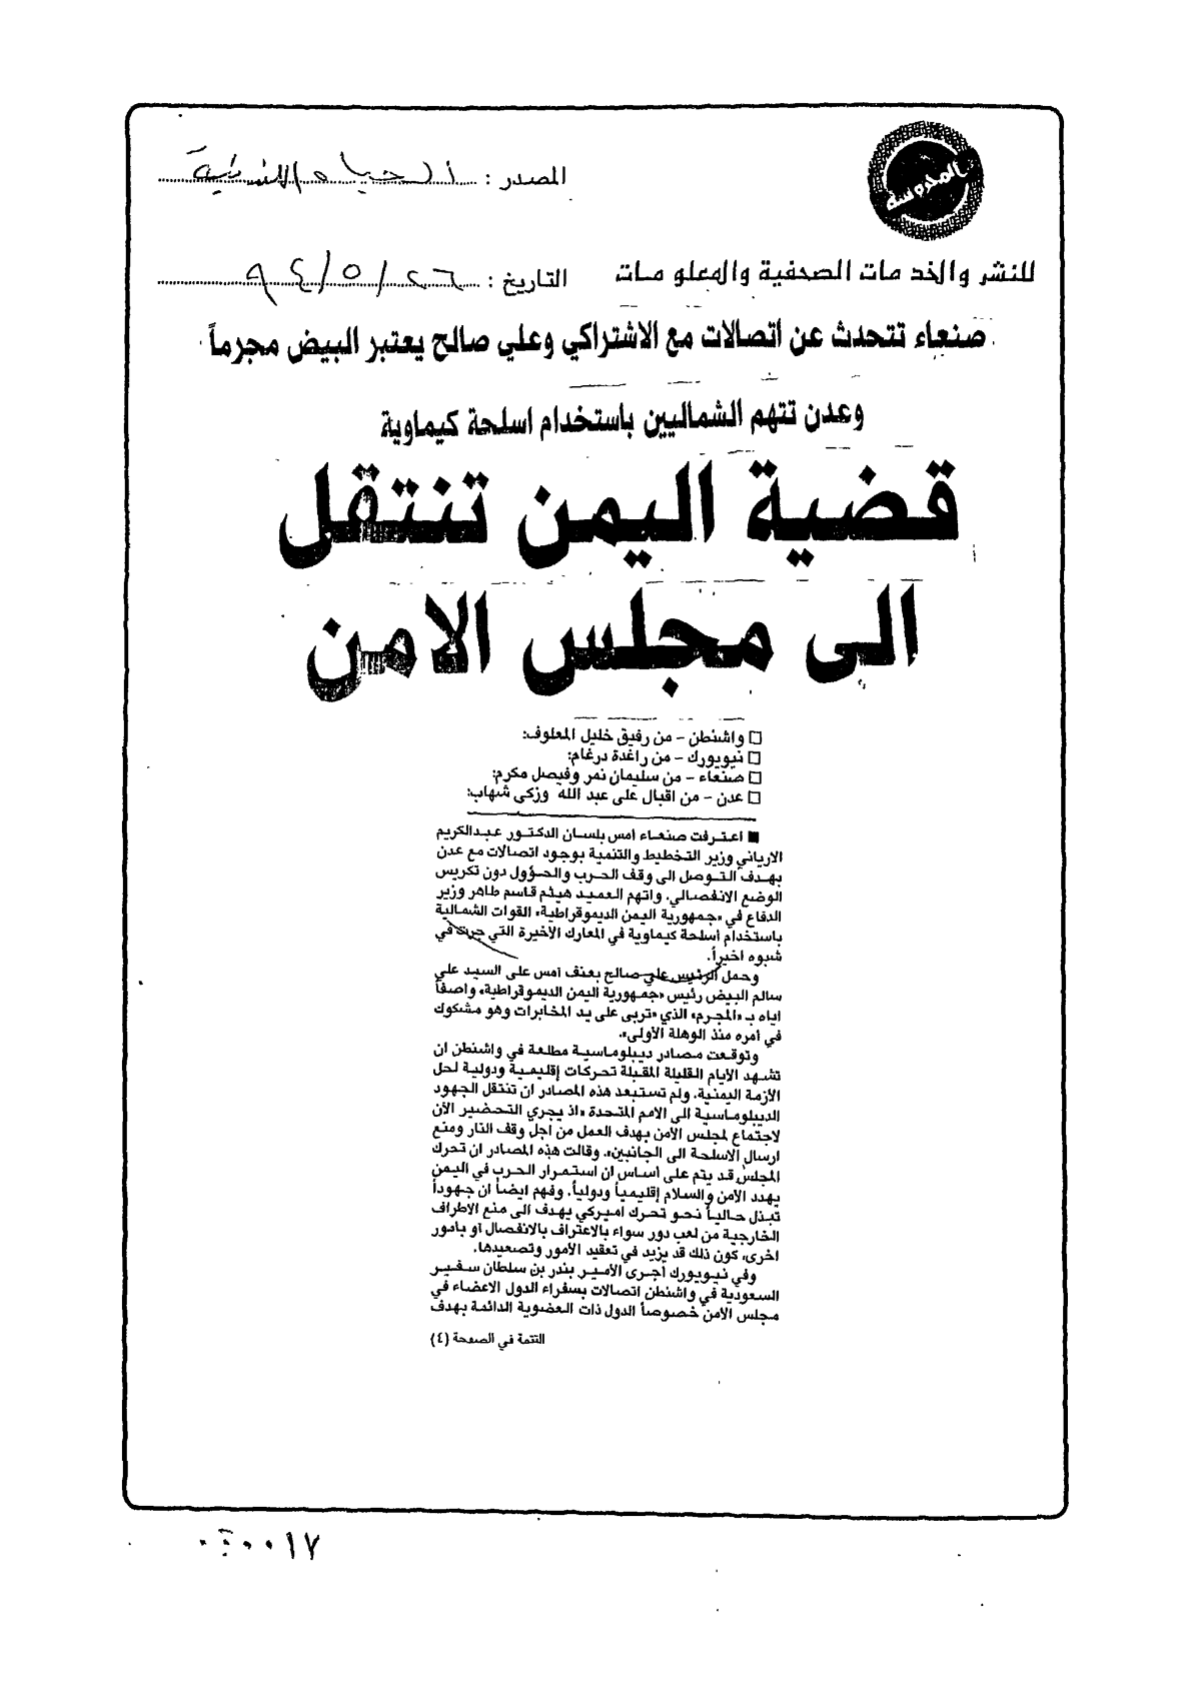 المحروسة
المصدر : الحياة اللندنية
للنشر والخدمات الصحفية والمعلومات
التاريخ : ٢٦ / ٥ / ٩٤
صنعاء تتحدث عن اتصالات مع الاشتراكي وعلي صالح يعتبر البيض مجرماً
وعدن تتهم الشماليين باستخدام اسلحة كيماوية
قضية اليمن تنتقل
الى مجلس الامن
□ واشنطن - من رفيق خليل المعلوف:
□ نيويورك - من راغدة درغام:
□ صنعاء - من سليمان نمر وفيصل مكرم:
□ عدن - من اقبال على عبد الله وزكي شهاب:
■ اعترفت صنعاء أمس بلسان الدكتور عبدالكريم
الارياني وزير التخطيط والتنمية بوجود اتصالات مع عدن
بهدف التوصل الى وقف الحرب والحؤول دون تكريس
الوضع الانفصالي. واتهم العميد هيثم قاسم طاهر وزير
الدفاع في «جمهورية اليمن الديموقراطية» القوات الشمالية
باستخدام أسلحة كيماوية في المعارك الأخيرة التي جرت في
شبوه اخيراً.
وحمل الرئيس علي صالح بعنف أمس على السيد علي
سالم البيض رئيس «جمهورية اليمن الديموقراطية» واصفاً
اياه بـ «المجرم» الذي «تربى على يد المخابرات وهو مشكوك
في أمره منذ الوهلة الأولى».
وتوقعت مصادر ديبلوماسية مطلعة في واشنطن ان
تشهد الايام القليلة المقبلة تحركات إقليمية ودولية لحل
الأزمة اليمنية. ولم تستبعد هذه المصادر ان تنتقل الجهود
الديبلوماسية الى الامم المتحدة «اذ يجري التحضير الآن
لاجتماع لمجلس الأمن بهدف العمل من اجل وقف النار ومنع
ارسال الاسلحة الى الجانبين». وقالت هذه المصادر ان تحرك
المجلس قد يتم على أساس ان استمرار الحرب في اليمن
يهدد الأمن والسلام إقليمياً ودولياً. وفهم ايضاً ان جهوداً
تبذل حالياً نحو تحرك اميركي يهدف الى منع الاطراف
الخارجية من لعب دور سواء بالاعتراف بالانفصال أو بأمور
اخرى، كون ذلك قد يزيد في تعقيد الأمور وتصعيدها.
وفي نيويورك أجرى الأمير بندر بن سلطان سفير
السعودية في واشنطن اتصالات بسفراء الدول الاعضاء في
مجلس الأمن خصوصاً الدول ذات العضوية الدائمة بهدف
التتمة في الصفحة (٤)